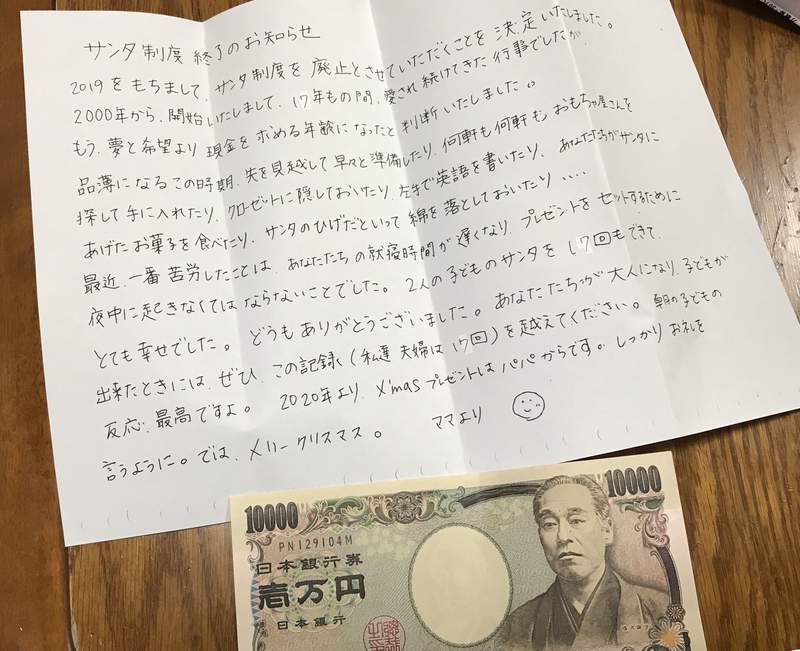 サンタ制度 終了のお知らせ
2019をもちまして、サンタ制度を廃止とさせていただくことを決定いたしました。
2000年から、開始いたしまして、17年もの間、愛され続けてきた行事でしたが、
もう、夢と希望より現金を求める年齢になったと判断いたしました。
品薄になるこの時期、先を見越して早々と準備したり、何軒も何軒もおもちゃ屋さんを
探して手に入れたり、クローゼットに隠しておいたり、左手で英語を書いたり、あなたたちがサンタに
あげたお菓子を食べたり、サンタのひげだといって綿を落としておいたり....
最近、一番苦労したことは、あなたたちの就寝時間が遅くなり、プレゼントをセットするために
夜中に起きなくてはならないことでした。2人の子どものサンタを17回もできて、
とても幸せでした。どうもありがとうございました。あなたたちが大人になり、子どもが
出来たときには、ぜひ、この記録(私達夫婦は17回)を越えてください。朝の子どもの
反応、最高ですよ。 2020年より、X'masプレゼントはパパからです。しっかりお礼を
言うように。では、メリークリスマス。 ママより
10000
10000
PN129104M
日本銀行券
壱万円
日本銀行